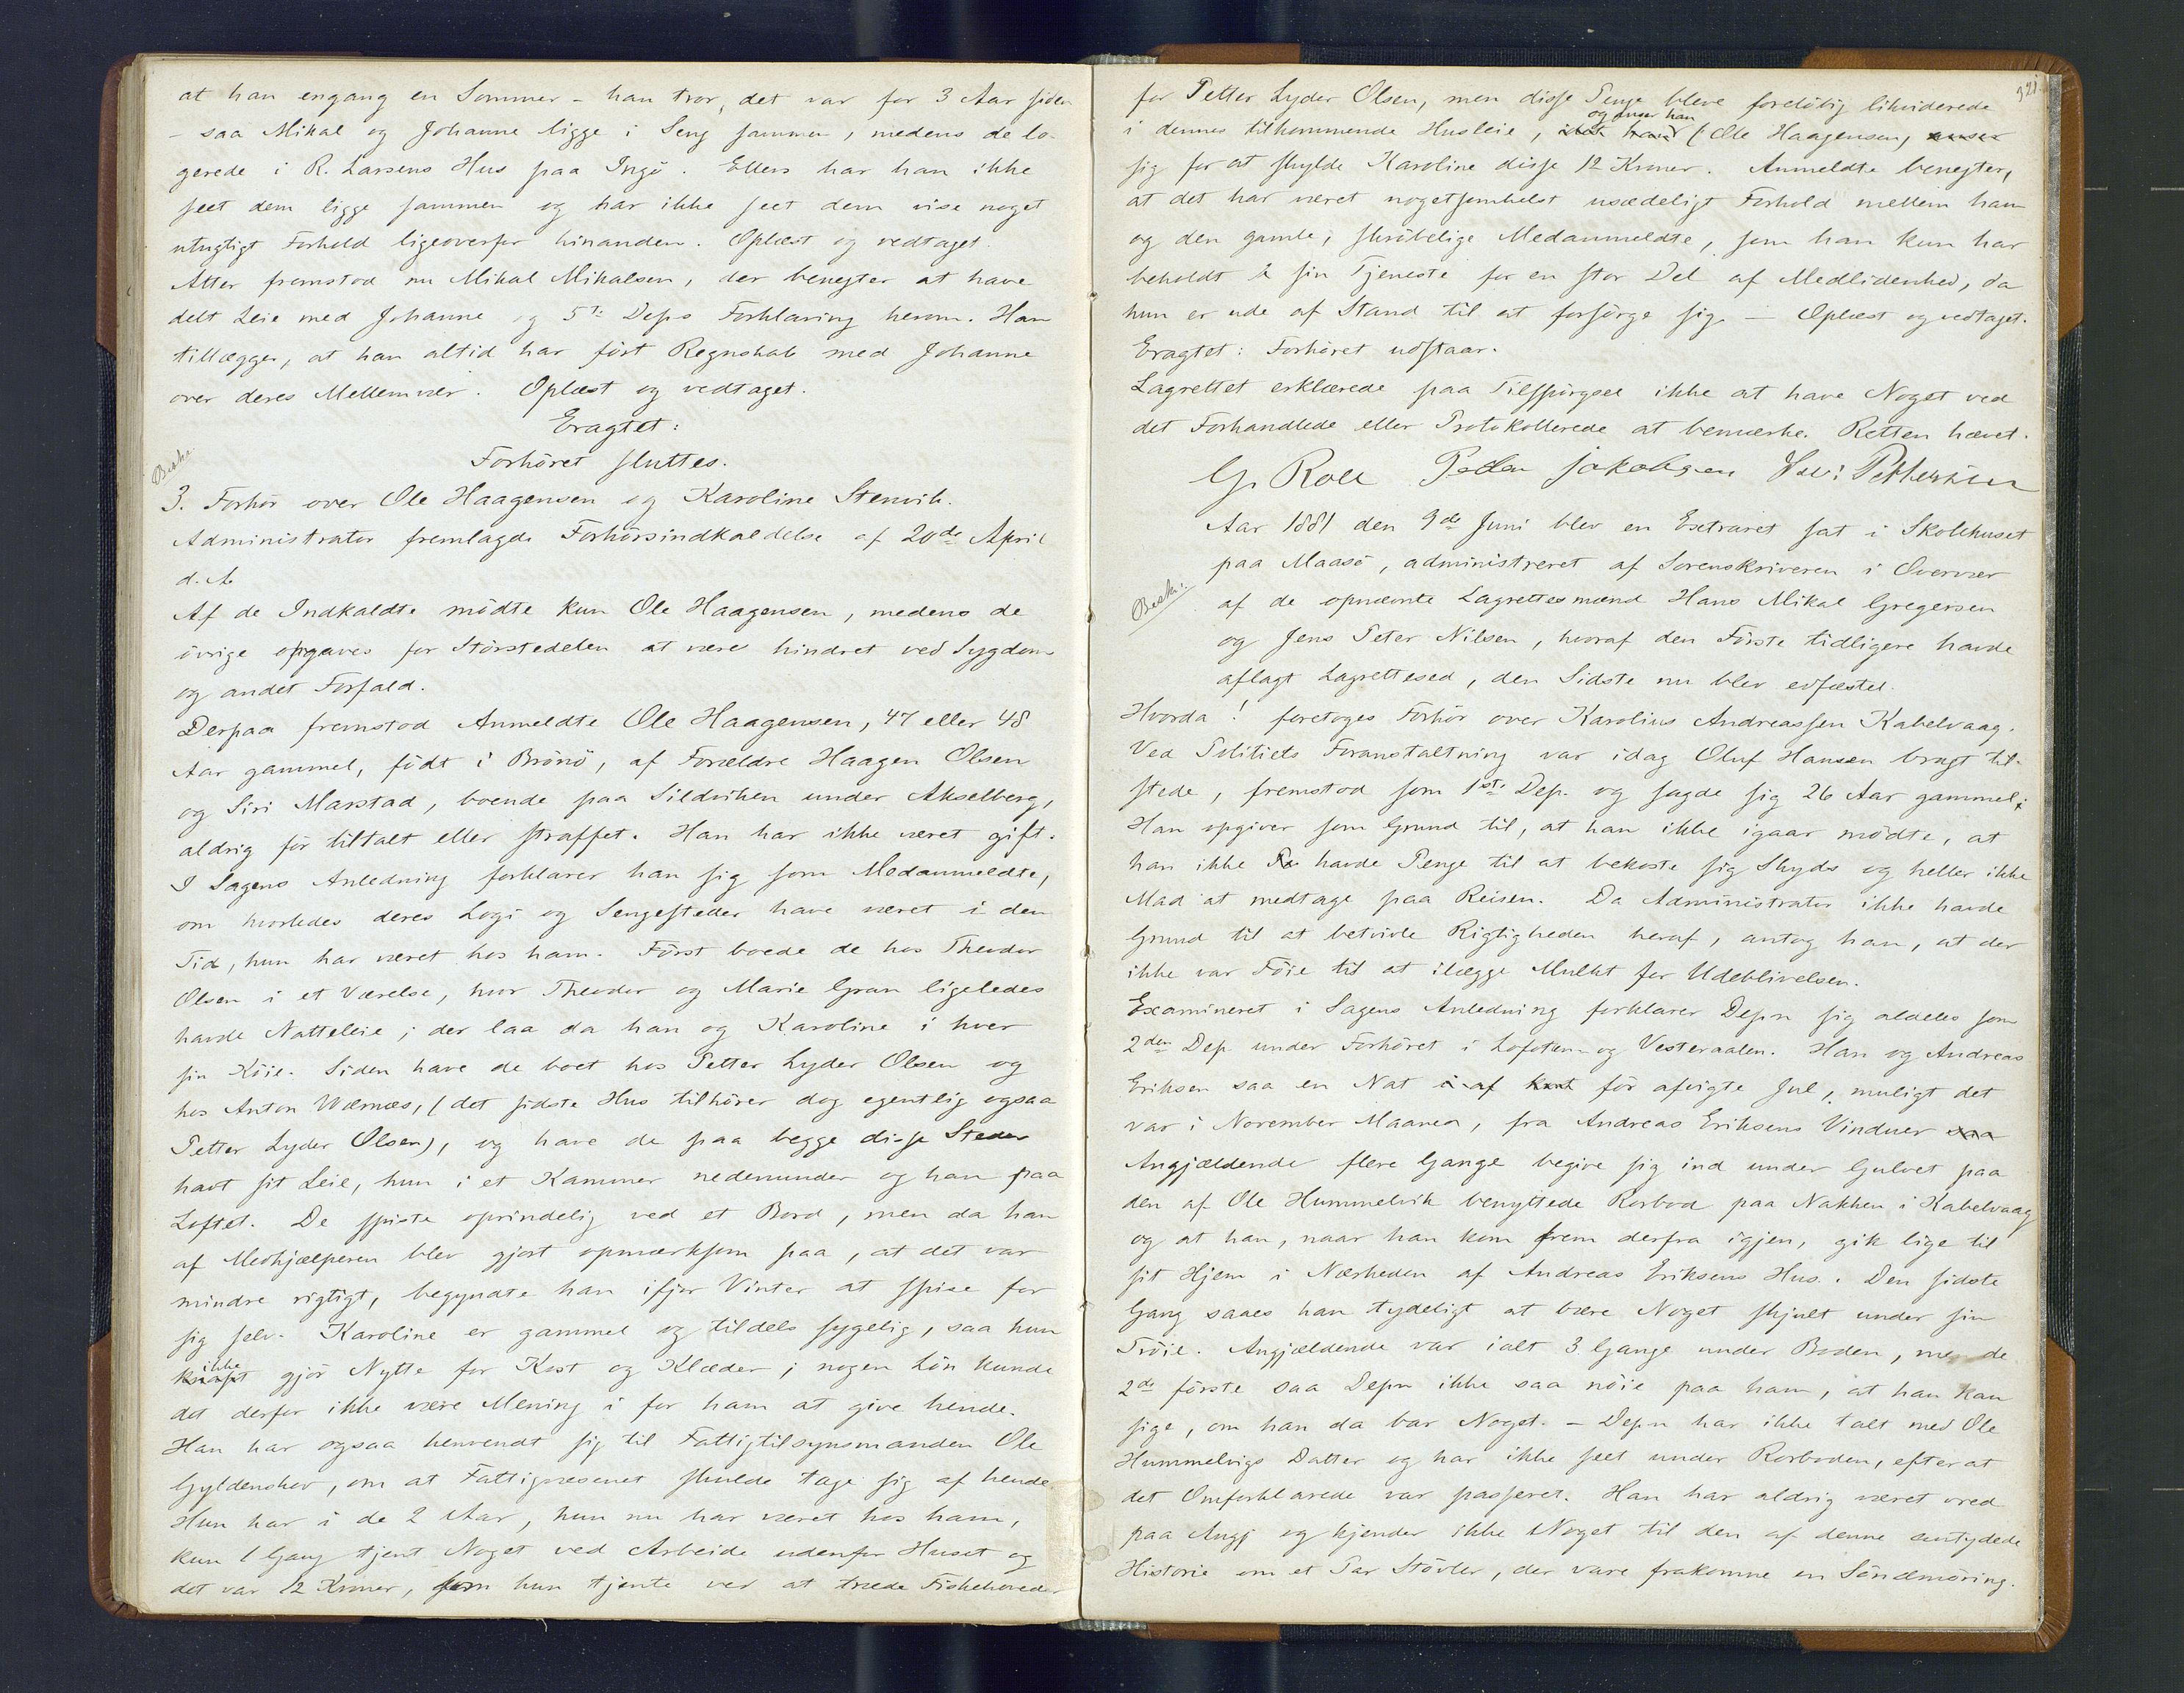 at han engang en Sommer - han tror, det var for 3 Aar siden
- saa Mikal og Johanne ligge i Seng sammen, medens de lo-
gerede i R. Larsens Hus paa Ingö. Ellers har han ikke
seet dem ligge sammen og har ikke seet dem vise noget
utugtigt Forhold ligeoverfor hinanden. Oplæst og vedtaget.
Atter fremstod nu Mikal Mikalsen, der benegter at have
delt Leie med Johanne og 5te Deps Forklaring herom. Han
tillægger, at han altid har fört Regnskab med Johanne
over deres Mellemvær. Oplæst og vedtaget.
Eragtet:
Forhöret sluttes.
Besk.
3. Forhör over Ole Haagensen og Karoline Stenvik.
Administrator fremlagde Forhörsindkaldelse af 20de April
d. A.
Af de Indkaldte mödte kun Ole Haagensen, medens de
övrige opgaves for Störstedelen at være hindret ved Sygdom
og andet Forfald.
Derpaa fremstod Anmeldte Ole Haagensen, 47 eller 48
Aar gammel, födt i Brönö, af Forældre Haagen Olsen
og Siri Marstad, boende paa Sildviken under Akselberg,
aldrig för tiltalt eller straffet. Han har ikke været gift.
I Sagens Anledning forklarer han sig som Medanmeldte,
om hvorledes deres Logi og Sengesteder have været i den
Tid, hun har været hos ham. Först boede de hos Theodor
Olsen i et Værelse, hvor Theodor og Marie Gran ligeledes
havde Natteleie; der laa da han og Karoline i hver
sin Köie. Siden have de boet hos Petter Lyder Olsen og
hos Anton Wæmæs, (det sidste Hus tilhörer dog egentlig ogsaa
Petter Lyder Olsen), og have de paa begge disse Steder
havt sit Leie, hun i et Kammer nedenunder og han paa
Loftet. De spiste oprindelig ved et Bord, men da han
af Medhjælperen blev gjort opmærksom paa, at det var
mindre rigtigt, begyndte han ifjor Vinter at spise for
sig selv. Karoline er gammel og tildels sygelig, saa hun
ikke
gjör Nytte for Kost og Klæder; nogen Lön kunde
det derfor ikke være Mening i for ham at give hende.
Han har ogsaa henvendt sig til Fattigtilsynsmanden Ole
Gyldenskov, om at Fattigvæsenet skulde tage sig af hende.
Hun har i de 2 Aar, hun nu har været hos ham,
kun 1 Gang tjent Noget ved Arbeide udenfor Huset og
det var 12 Kroner, som hun tjente ved at træde Fiskehoveder
321
for Petter Lyder Olsen, men disse Penge bleve foreløbig likviderede
og anser han
i dennes tilkommende Husleie, idet han (Ole Haagensen) anser
sig for at skylde Karoline disse 12 Kroner. Anmeldte benegter,
at det har været nogetsomhelst usædeligt Forhold mellem ham
og den gamle, skröbelige Medanmeldte, som han kun har
beholdt i sin Tjeneste for en stor Del af Medlidenhed, da
hun er ude af Stand til at forsörge sig. - Oplæst og vedtaget.
Eragtet: Forhöret udstaar.
Lagrettet erklærede paa Tilspörgsel ikke at have Noget ved
det Forhandlede eller Protokollerede at bemærke. Retten hævet.
G. Roll Peder Jakobsen Pettersen
Aar 1881 den 9de Juni blev en Extraret sat i Skolehuset
paa Maasö, administreret af Sorenskriveren i Overvær
Besk.
af de opnævnte Lagrettesmænd Hans Mikal Gregersen
og Jens Peter Nilsen, hvoraf den Förste tidligere havde
aflagt Lagrettesed, den Sidste nu blev edfæstet.
Hvorda! foretoges Forhör over Karolius Andreassen Kabelvaag.
Ved Politiets Foranstaltning var idag Oluf Hansen bragt til-
stede, fremstod som 1ste Dep. og sagde sig 26 Aar gammel;
Han opgiver som Grund til, at han ikke igaar mödte, at
han ikke Pe havde Penge til at bekoste sig Skyds og heller ikke
Mad at medtage paa Reisen. Da Administrator ikke havde
Grund til at betvivle Rigtigheden heraf, antog han, at der
ikke var Föie til at ilægge Mulkt for Udeblivelsen.
Examineret i Sagens Anledning forklarer Depn sig aldeles som
2den Dep. under Forhöret i Lofoten og Vesteraalen. Han og Andreas
Eriksen saa en Nat i af kort för afvigte Jul, muligt det
var i November Maaned, fra Andreas Eriksens Vinduer saa
Angjældende flere Gange begive sig ind under Gulvet paa
den af Ole Hummelvik benyttede Rorbod paa Nakken i Kabelvaag
og at han, naar han kom frem derfra igjen, gik lige til
sit Hjem i Nærheden af Andreas Eriksens Hus. Den sidste
Gang saaes han tydeligt at bære Noget skjult under sin
Tröie. Angjældende var ialt 3 Gange under Boden, men de
2de förste saa Depn ikke saa nöie paa ham, at han kan
sige, om han da bar Noget. - Depn har ikke talt med Ole
Hummelvigs Datter og har ikke seet under Rorboden, efterat
det Omforklarede var passeret. Han har aldrig været vred
paa Angj og kjender ikke Noget til den af denne antydede
Historie om et Par Stövler, der vare frakomne en Söndmöring.